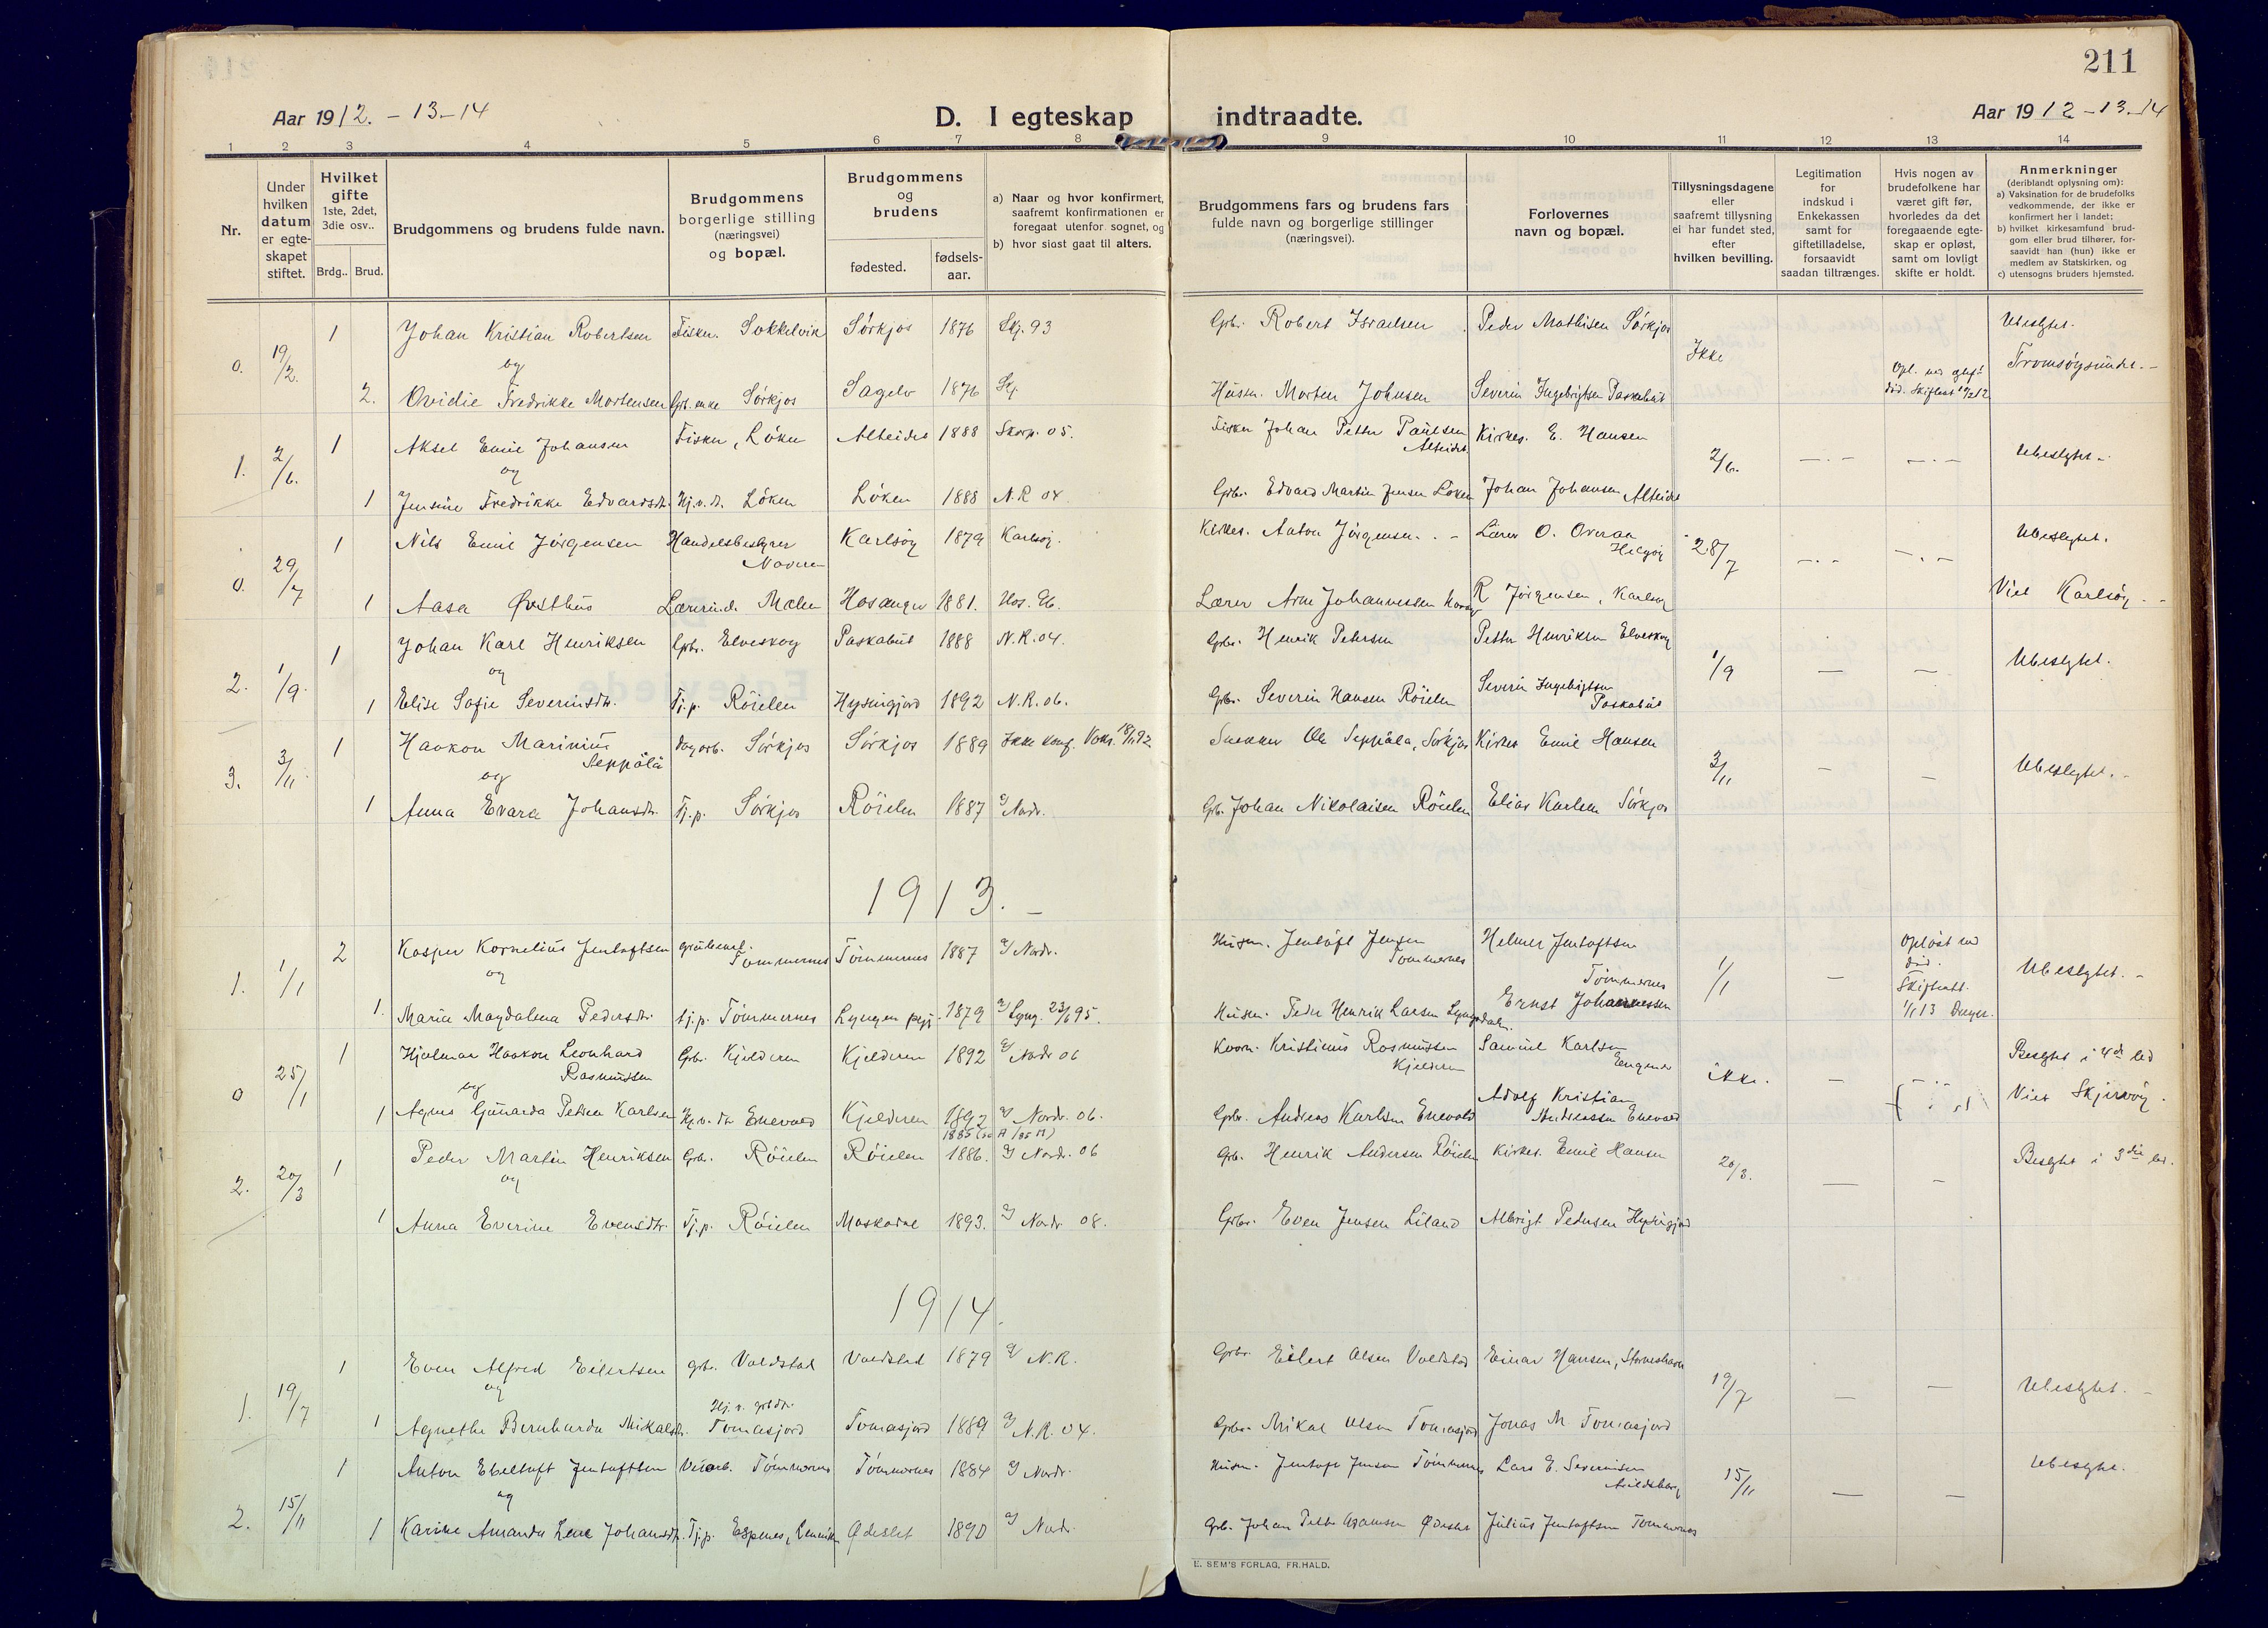 211
Aar 1912. - 13 - 14
D. I egteskap indtraadte.
Aar 1912 - 13 - 14
1 2 3 4 5 6 7 8 9 10 11 12 13 14
Nr.
Under
hvilken
datum
er egte-
skapet
stiftet.
Hvilket
gifte
1ste, 2det,
3die osv..
Brdg.. Brud.
Brudgommens og brudens fulde navn.
Brudgommens
borgerlige stilling
(næringsvei)
og bopæl.
Brudgommens
og
brudens
fødested.
fødsels-
aar.
a) Naar og hvor konfirmert,
saafremt konfirmationen er
foregaat utenfor sognet, og
b) hvor sidst gaat til alters.
Brudgommens fars og brudens fars
fulde navn og borgerlige stillinger
(næringsvei).
Forlovernes
navn og bopæl.
Tillysningsdagene
eller
saafremt tillysning
ei har fundet sted,
efter
hvilken bevilling.
Legitimation
for
indskud i
Enkekassen
samt for
giftetilladelse,
forsaavidt
saadan tiltrænges.
Hvis nogen av
brudefolkene har
været gift før,
hvorledes da det
foregaaende egte-
skap er opløst,
samt om lovligt
skifte er holdt.
Anmerkninger
(deriblandt oplysning om):
a) Vaksination for de brudefolks
vedkommende, der ikke er
konfirmert her i landet;
b) hvilket kirkesamfund brud-
gom eller brud tilhører, for-
saavidt han (hun) ikke er
medlem av Statskirken, og
c) utensogns bruders hjemsted.
0. 19/2. 1 Johan Kristian Robertsen Fisker. Sokkelvik Sörkjos 1876 Skj. 93 Grb. Robert Israelsen Peder Mathisen Sörkjos Ikke Ubeslgtet.
og
Tromsöysundet. -
2. Ovidie Fredrikke Mortensen Grb. enke Sörkjos Sagelv 1876 Skj Husm. Morten Johnsen Severin Ingebrigtsen Paskabut
1. 2/6. 1 Aksel Emil Johansen Fisker, Löken Alteidet 1888 Skjerv. 05. Fisker Johan Petter Paulsen Alteidet Kirkes. E. Hansen 2/6. Ubeslgtet.
og
1 Jensine Fredrikke Edvardsdtr. Hj.v.dt. Löken Löken 1888 N.R 04 Grbr. Edvard Martin Jensen Loken Johan Johansen Alteidet
0. 29/7 1 Nils Emil Jörgensen Handelsbestyrer Karlsöy 1879 Karlsöy. Kirkes. Anton Jörgensen. Lærer O. Overaa 28/7 Ubeslgtet.
1 Aasa Østhus Lærerinde Mælen Hosanger 1881. Hos. Lærer Arne Johannessen R Jörgensen, Karlsöy Viet Karlsöy
2. 1/9. 1 Johan Karl Henriksen Grbr. Elveskog Paskabut 1888 N.R. 04. Grbr. Henrik Petersen Petter Henriksen Elveskog 1/9 Ubeslgtet.
og
1 Elise Sofie Severinsdtr. Tj.p. Röielen Hysingjord 1892 N.R. 06. Grbr. Severin Hansen Röielen Severin Ingebrigtsen Paskabut
3. 3/11 1 Haakon Marinius Seppälä dagarb. Sörkjos Sörkjos 1889 Ikke konf. Vaks. Snekker Ole Seppäla, Sörkjos Kirkes Emil Hansen 3/11 Ubeslgtet.
og
1 Anna Evara Johansdtr. Tj.p. Sörkjos Röielen 1887 Nordr. Grb. Johan Nikolaisen Röielen Elias Karlsen Sörkjos
1913. -
1. 1/1 2 Kasper Kornelius Jentoftsen grubearb. Tømmernes Tömmernes 1887 Nordr. Husm. Jentoft Jensen Tommernes Helmer Jentoftsen Tömmernes 1/1 Opløst ved död. Skifteatt. 1/1 13 Ubeslgtet. -
og
1. Maria Magdalena Pedersdtr. tj.p. Tömmernes Lyngen 1879 Lyng. 23/6 95. Husm. Peder Henrik Larsen Lyngsdalen Ernst Johannessen
0 25/1 1 Hjalmar Haakon Leonhard Rasmussen Grb. Kjelderen Kjelderen 1892 Nordr 06 Kristinus Rasmussen Kjelderen Samuel Karlsen ikke. Beslgtet i 4de led
og
1 Agnes Gunarda Petrea Karlsen Hj.v.dtr Enevold Kjelderen 1892 Nordr. 06. Grbr. Andreas Karlsen Enevold Adolf Kristian Andreassen Enevold Viet Skjervöy.
2. 20/3 1 Peder Martin Henriksen Grb. Röielen Röielen 1886. Nordr. 06 Grb. Henrik Andersen Röielen Kirkes. Emil Hansen 20/3. Beslgtet i 3die led.
og
1 Anna Everine Evensdtr. Tj.p. Röielen Maskadal 1893. Nordr 08. Grbr. Even Jensen Liland Albrigt Pedersen Hysingjord
1914.
1. 19/7 1 Even Alfred Eilertsen grb. Valdstad Valdstad 1879 N.R. Grbr. Eilert Olsen Valdstad Einar Hansen, Storneshavn 19/7 Ubeslgtet. -
og
1 Agnethe Bernharda Mikalsdtr. Hj. v. grbdtr. Tomasjord Tomasjord 1889 N.R. 04. Grbr. Mikal Olsen Tomasjord Jonas M. Tomasjord
2. 15/11 1 Anton Ebeltoft Jentoftsen Veiarb. Tömmernes Tömmernes 1884 Nordr. Husm. Jentoft Jensen Tömmernes Lars E. Severinsen 15/11 Ubeslgtet.
og
1 Karine Amanda Lene Johansdtr. Tj.p. Espenes, Ødeslet 1890 Nordr. Grb. Johan Petter Ødeslet Julius Jentoftsen Tömmernes
E. SEM'S FORLAG, FR. HALD.